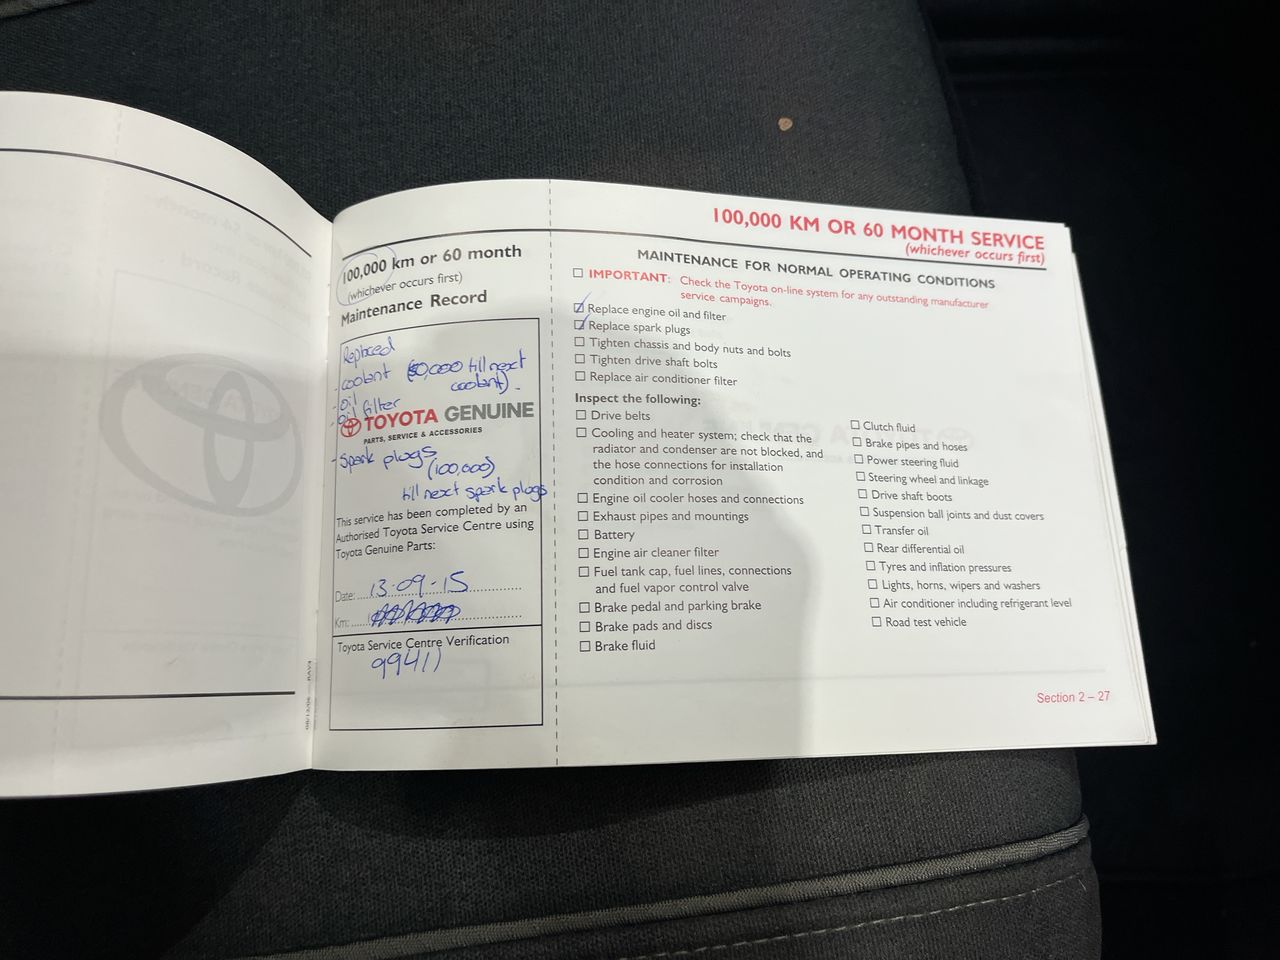 100,000 km or 60 month
(whichever occurs first)
Maintenance Record
Replaced
- coolant (80,000 till next
coolant).
- oil
- oil filter
TOYOTA GENUINE
PARTS, SERVICE & ACCESSORIES
- spark plugs
(100,000)
till next spark plugs
This service has been completed by an
Authorised Toyota Service Centre using
Toyota Genuine Parts:
Date: 13-09-15
Km:
Toyota Service Centre Verification
99411
100,000 KM OR 60 MONTH SERVICE
(whichever occurs first)
MAINTENANCE FOR NORMAL OPERATING CONDITIONS
IMPORTANT: Check the Toyota on-line system for any outstanding manufacturer
service campaigns.
Replace engine oil and filter
Replace spark plugs
Tighten chassis and body nuts and bolts
Tighten drive shaft bolts
Replace air conditioner filter
Inspect the following:
Drive belts
Cooling and heater system; check that the
radiator and condenser are not blocked, and
the hose connections for installation
condition and corrosion
Engine oil cooler hoses and connections
Exhaust pipes and mountings
Battery
Engine air cleaner filter
Fuel tank cap, fuel lines, connections
and fuel vapor control valve
Brake pedal and parking brake
Brake pads and discs
Brake fluid
Clutch fluid
Brake pipes and hoses
Power steering fluid
Steering wheel and linkage
Drive shaft boots
Suspension ball joints and dust covers
Transfer oil
Rear differential oil
Tyres and inflation pressures
Lights, horns, wipers and washers
Air conditioner including refrigerant level
Road test vehicle
Section 2 – 27